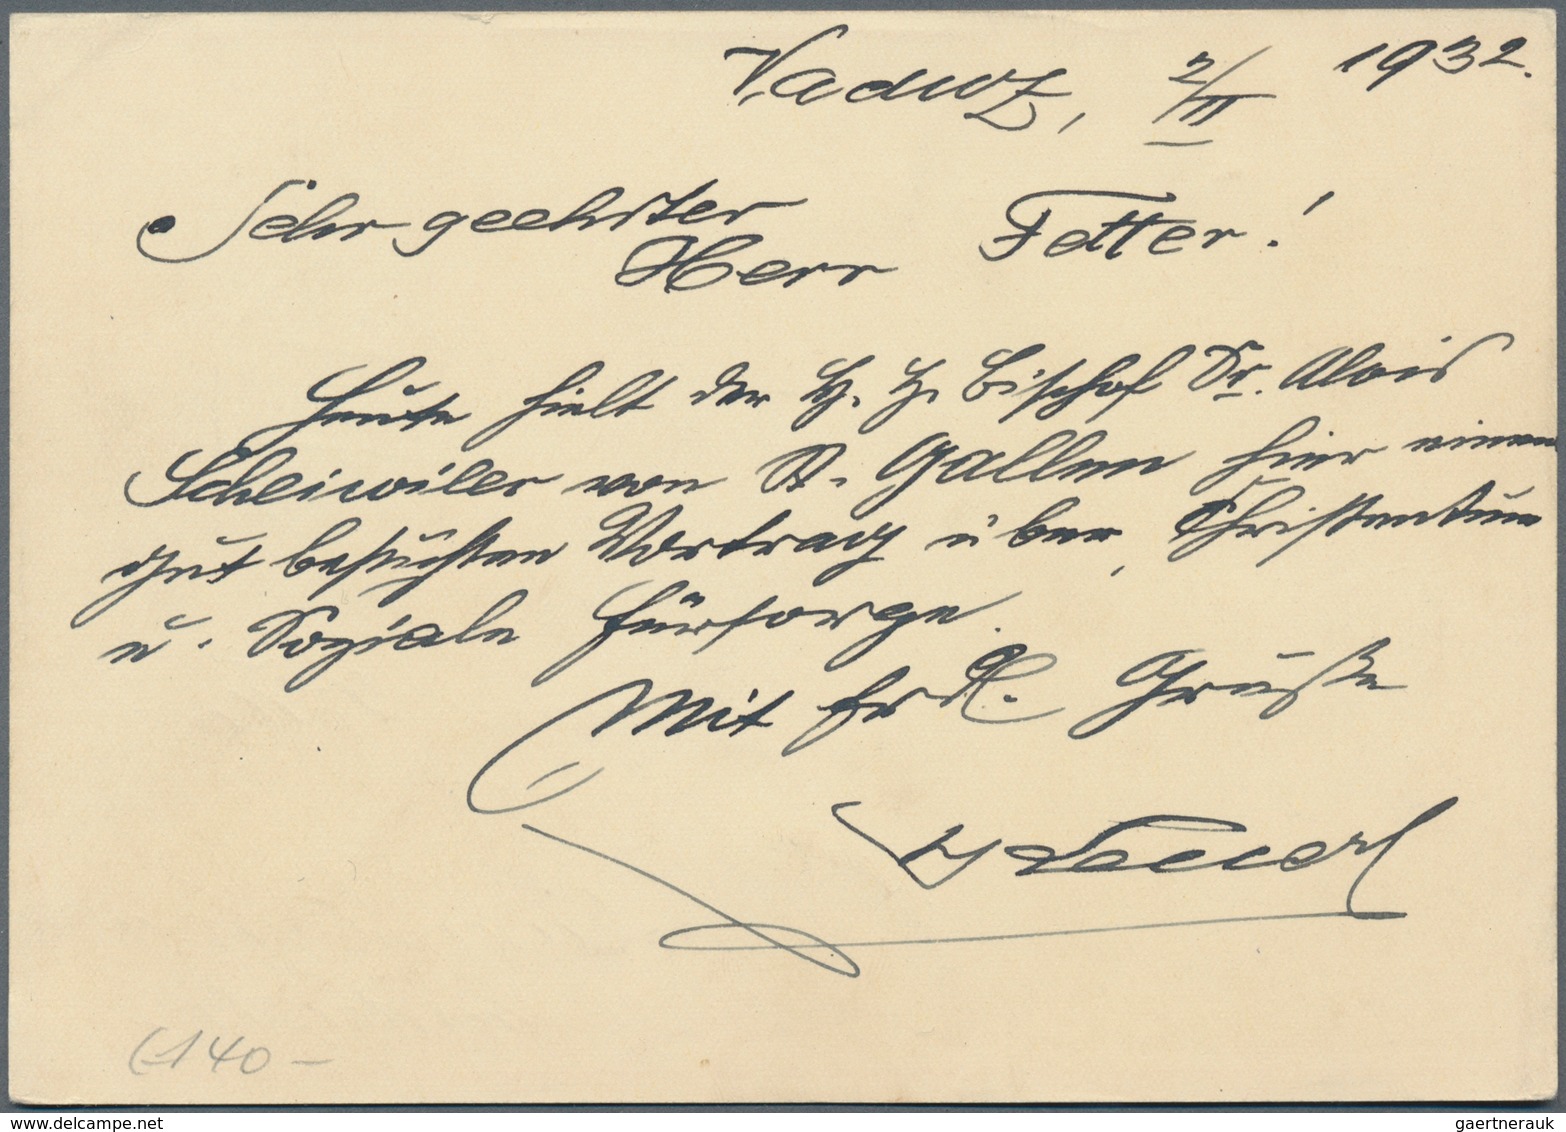 Vaduz, 2/II 1932.
Sehr geehrter
Herr Fetter!
Heute hielt der H. H. Bischof Dr. Alois
Scheiwiler von St. Gallen hier einen
gut besuchten Vortrag über, Christentum
u. Soziale Fürsorge.
Mit frdl. Grüße
140 —
www.delcampe.net
gaertnerauk